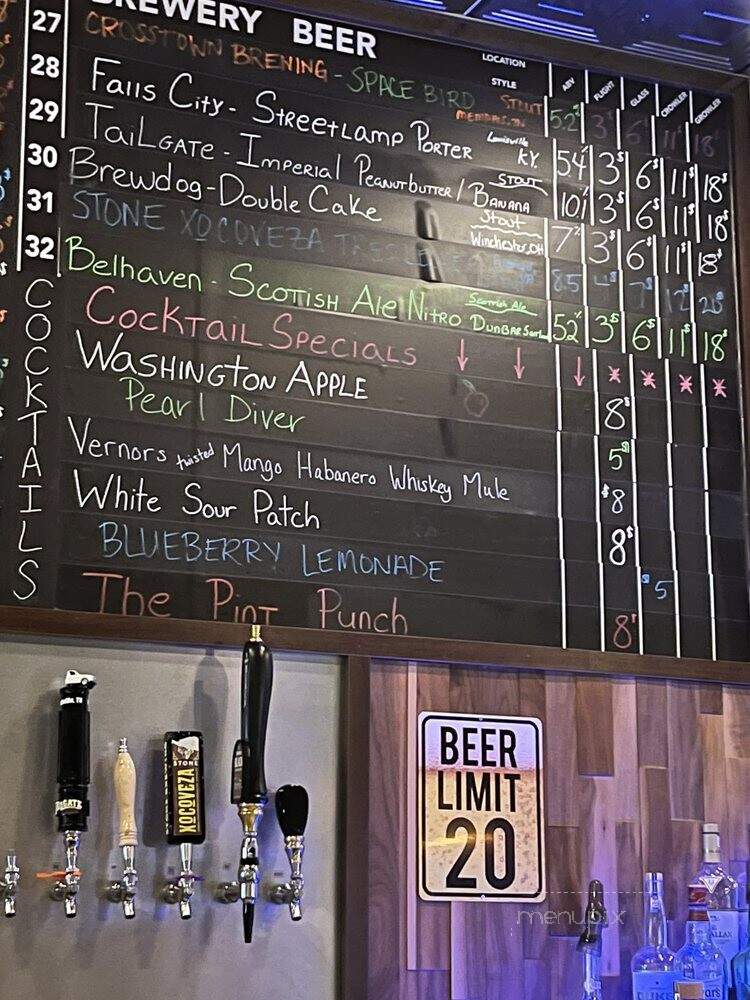 BREWERY BEER
LOCATION
STYLE
ABV FLIGHT GLASS CROWLER GROWLER
27 CROSSTOWN BREWING - SPACE BIRD STOUT MEMPHIS, TN 5.2% 3 6 11 18
28 Falls City - Streetlamp Porter Louisville KY. 5.4% 3$ 6$ 11$ 18$
29 TailGate - Imperial Peanutbutter / Banana Stout 10% 3$ 6$ 11$ 18$
30 Brewdog - Double Cake Stout Winchester, OH 7% 3$ 6$ 11$ 18$
31 STONE XOCOVEZA 8.5 4$ 7$ 12$ 20$
32 Belhaven - Scottish Ale Nitro Scottish Ale Dunbar 5.2% 3$ 6$ 11$ 18$
COCKTAILS
Cocktail Specials ↓ ↓ ↓ * * * *
Washington Apple 8$
Pearl Diver 5$
Vernors twisted Mango Habanero Whiskey Mule $8
White Sour Patch 8$
BLUEBERRY LEMONADE $5
The Pint Punch 8$
STONE
XOCOVEZA
BEER
LIMIT
20
menupix